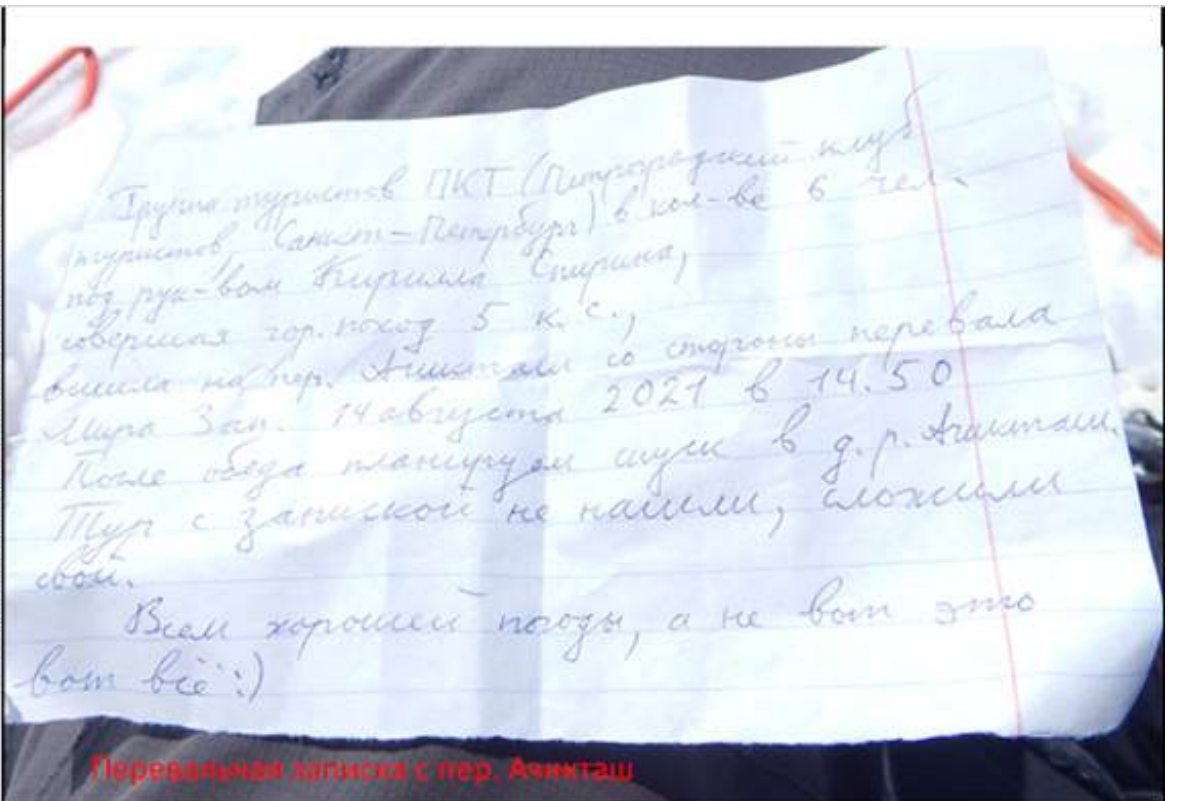 Группа туристов ПКТ (Петроградский клуб
туристов, Санкт-Петербург) в кол-ве 6 чел.
под рук-вом Кирилла Спирина,
совершая гор. поход 5 к.с.,
вышла на пер. Ачикташ со стороны перевала
Мира Зап. 14 августа 2021 в 14.50
После обеда планируем спуск в д.р. Ачикташ.
Тур с запиской не нашли, сложили
свой.
Всем хорошей погоды, а не вот это
вот всё :)
Перевальная записка с пер. Ачикташ